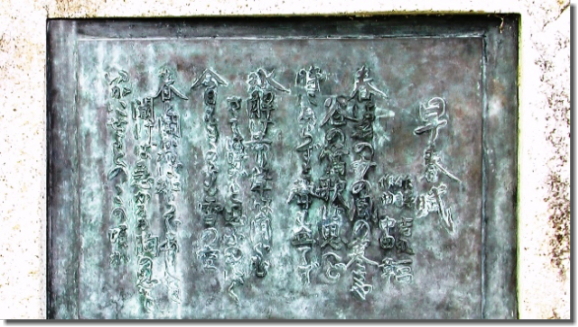 早春賦
作詞 吉丸一昌
作曲 中田章
春は名のみの風の寒さや
谷の鶯歌は思へど
時にあらずと声も立てず
氷解け去り葦は角ぐむ
さては時ぞと思ふあやにく
今日もきのふも雪の空
春と聞かねば知らでありしを
聞けば急かるる胸の思を
いかにせよとのこの頃か